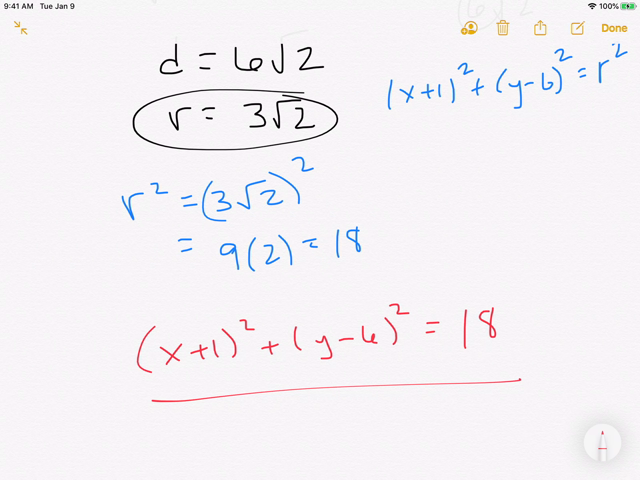 9:41 AM Tue Jan 9
100%
Done
d = 6√2
(x+1)² + (y-6)² = r²
r = 3√2
r² = (3√2)²
= 9(2) = 18
(x+1)² + (y-6)² = 18